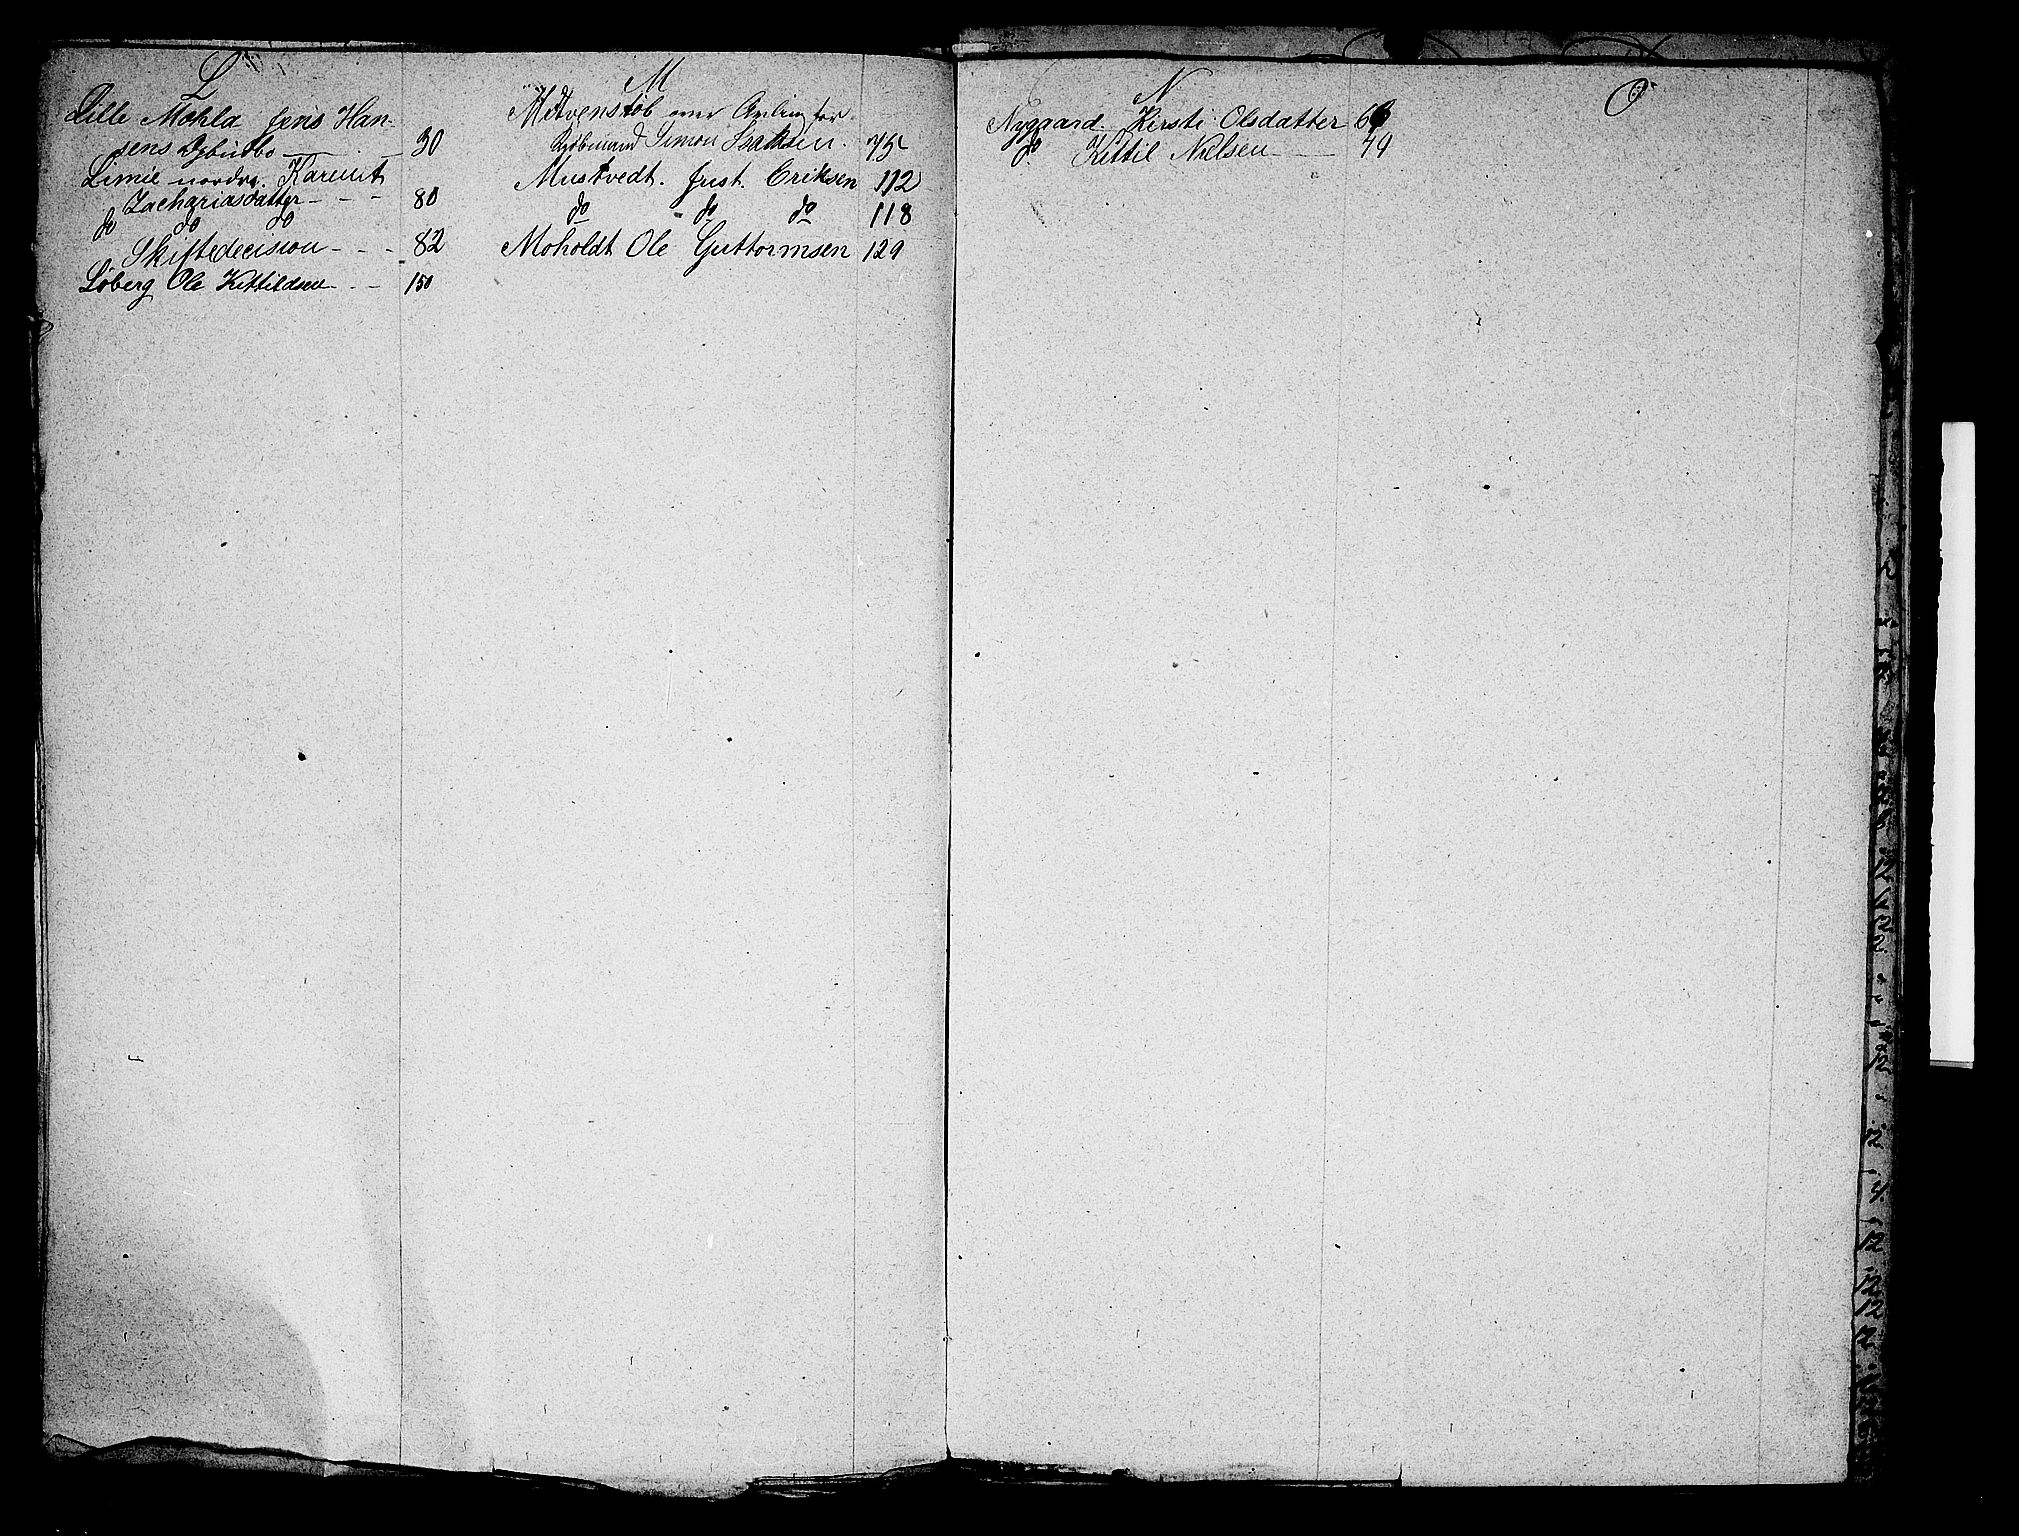 L
Lille Mohla Jens Han-
sens Dybuobo 30
Limie nordre. Karenit
Zachariasdatter - - - 80
do do do
Skiftedecision - - - 82
Löberg Ole Kittildsen - - - 150
M
over Arvling for
Kjøbmand Simon Isaksen. 75
Mustvedt. Just. Eriksen 112
do do do 118
Moholdt Ole Guttormsen 129
N
Nygaard. Kirsti Olsdatter
do Kittil Nielsen 49
O